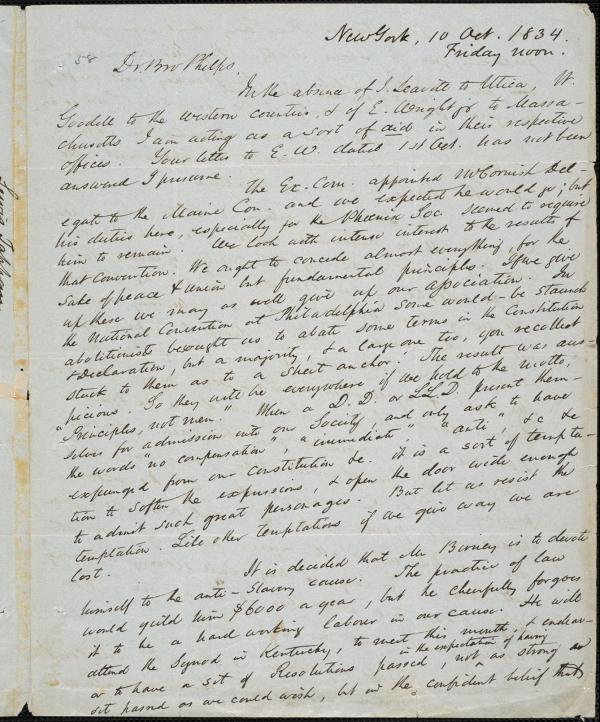 New York, 10 Oct. 1834.
Friday noon.
58
Dr. Bro Phelps.
In the absence of J. Leavitt to Utica, W.
Goodell to the western counties, & of E. Wright jr to Massa-
chusetts I am acting as a sort of aid in their respective
offices. Your letter to E. W. dated 1st Oct. has not been
answered I presume.
The Ex. Com. appointed Mr Cornish Del-
egate to the Maine Con. and we expected he would go; but
his duties here, especially for the Phoenix Soc. seemed to require
him to remain. We look with intense interest to the results of
that Convention. We ought to concede almost everything, for the
sake of peace & union but fundamental principles. If we give
up these we may as well give up our association. In
the National Convention at Philadelphia some would-be staunch
abolitionists besought us to abate some terms in the Constitution
& Declaration, but a majority, & a large one too, you recollect
stuck to them as to a sheet anchor. The result was aus-
picious. So they will be everywhere if we hold to the motto,
"Principles, not men." When a D.D. or LL.D. present them-
selves for admission into our Society, and only ask to have
the words "no compensation", "immediate", "anti", &c &c
expunged from our constitution &c. it is a sort of tempta-
tion to soften the expressions, & open the door wide enough
to admit such great personages. But let us resist the
temptation. Like other temptations if we give way we are
lost.
It is decided that Mr Birney is to devote
himself to the anti-Slavery cause. The practice of law
would yield him $6000 a year, but he cheerfully forgoes
it to be a hard working labour in our cause. He will
attend the Synod in Kentucky, to meet this month, & endeav-
or to have a set of Resolutions passed, not as strong
in the expectation of having
set passed as we could wish, but in the confident belief that
Lewis Tappan